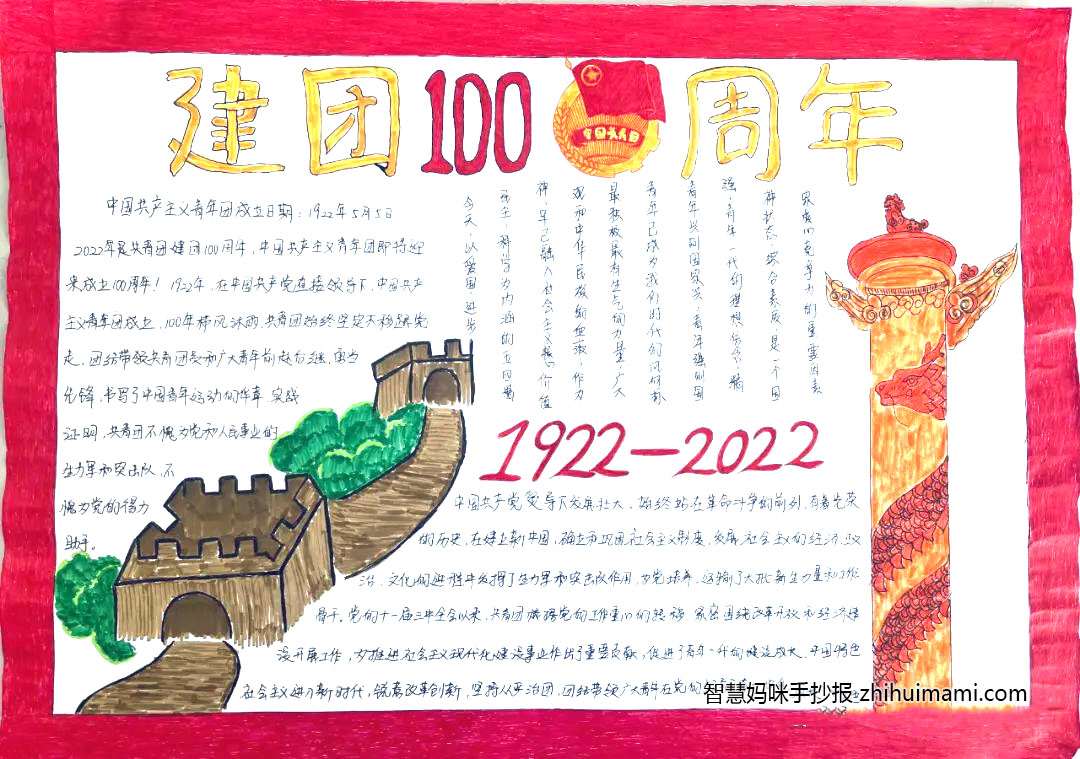 建团100周年
中国共青团
中国共产主义青年团成立日期:1922年5月5日
2022年是共青团建团100周年,中国共产主义青年团即将迎
来成立100周年!1922年,在中国共产党直接领导下,中国共产
主义青年团成立,100年栉风沐雨,共青团始终坚定不移跟党
走,团结带领共青团员和广大青年前赴后继、勇当
先锋,书写了中国青年运动的华章.实践
证明,共青团不愧为党和人民事业的
生力军和突击队,不
愧为党的得力
助手。
国家核心竞争力的重要因素
神状态、综合素质是一个国
强,青年一代的理想信念、精
青年兴则国家兴,青年强则国
青年已成为我们时代的风向标
最积极最有生气的力量,广大
观和中华民族的血液,作为
神,早已融入社会主义核心价值
民主、科学为内涵的五四精
今天,以爱国、进步、
1922—2022
中国共产党领导下发展壮大,始终站在革命斗争的前列,有着光荣
的历史,在建立新中国,确立和巩固社会主义制度,发展社会主义的经济、政
治、文化的进程中发挥了生力军和突击队作用,为党培养、输送了大批新生力量和工作
骨干。党的十一届三中全会以来,共青团根据党的工作重心的转移,紧密围绕改革开放和经济建
设开展工作,为推进社会主义现代化建设事业作出了重要贡献,促进了青年一代的健康成长。中国特色
社会主义进入新时代,锐意改革创新,坚持从严治团,团结带领广大青年在党的
智慧妈咪手抄报 zhihuimami.com